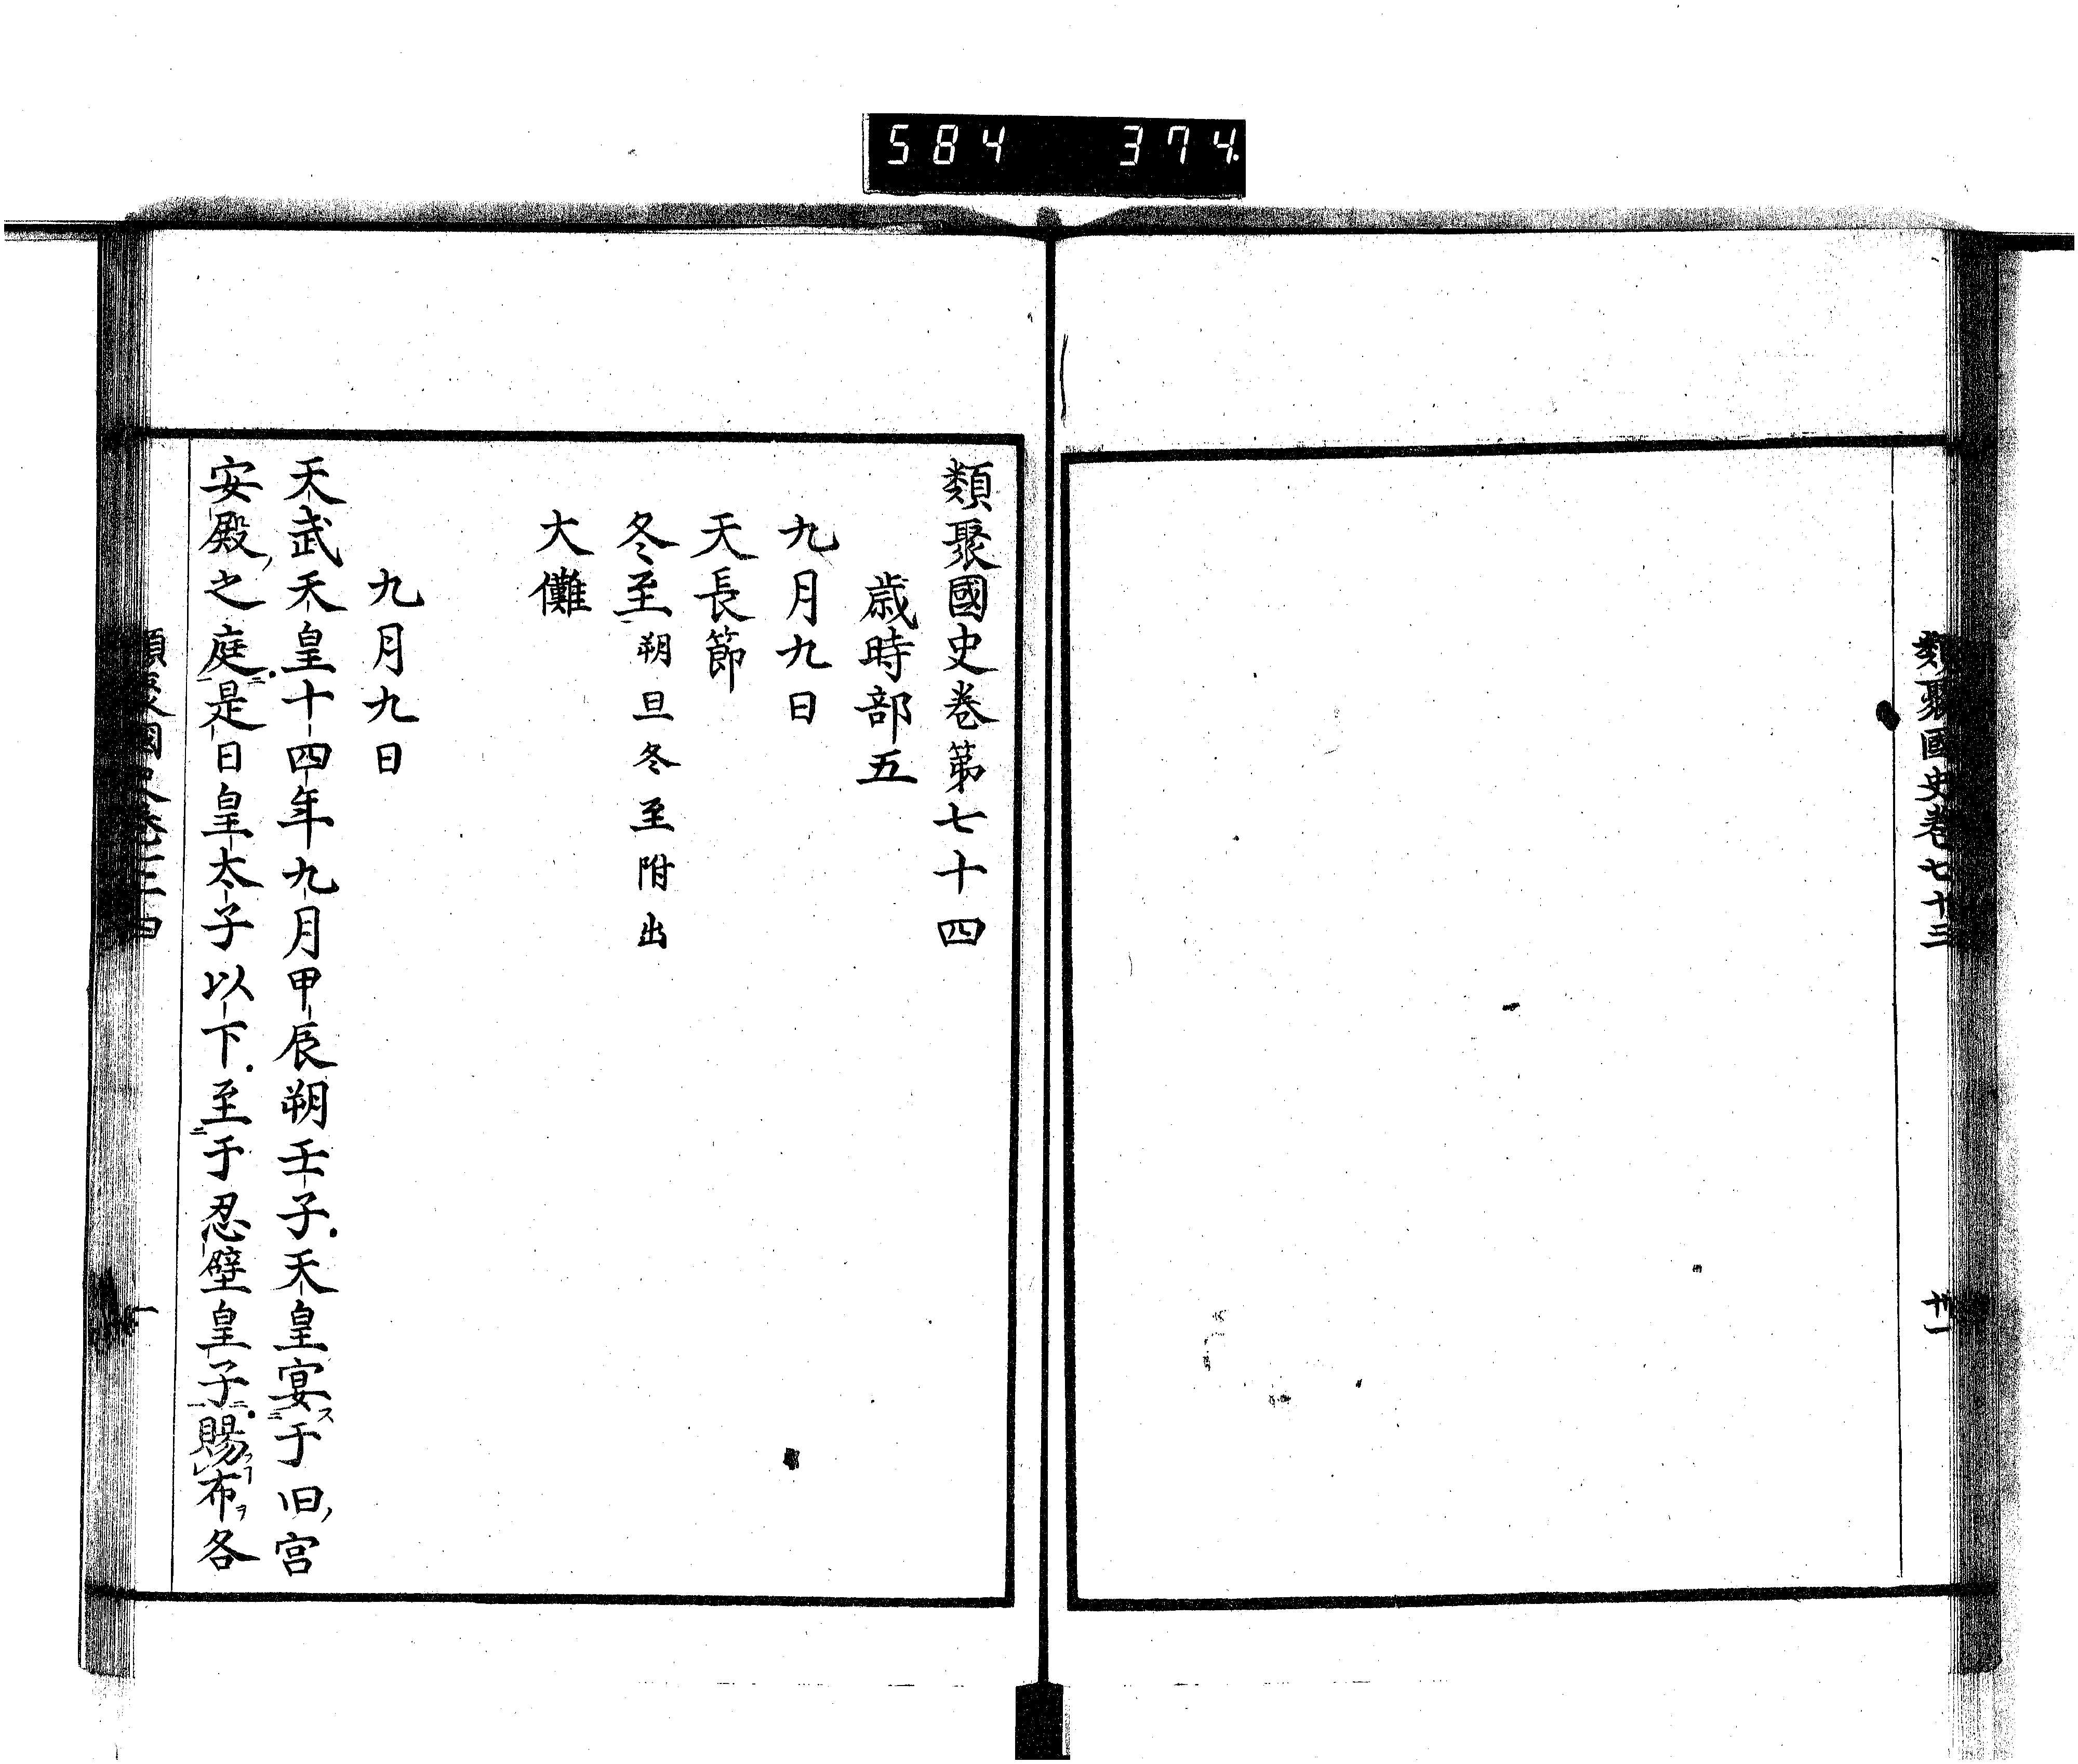 584 374
類聚國史卷七十三
廿一
類聚國史卷第七十四
歳時部五
九月九日
天長節
冬至 朔旦冬至附出
大儺
九月九日
天武天皇十四年九月甲辰朔壬子天皇宴于旧宮
安殿之庭是日皇太子以下至于忍壁皇子賜布各